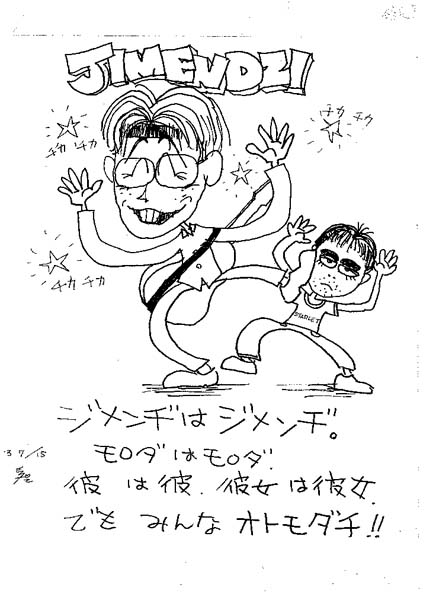 JIMENDZI
チカ チカ
チカ チカ
チカ チカ
ジメンヂはジメンヂ。
モロダはモロダ.
彼 は彼. 彼女は彼女.
でも みんな オトモダチ!!